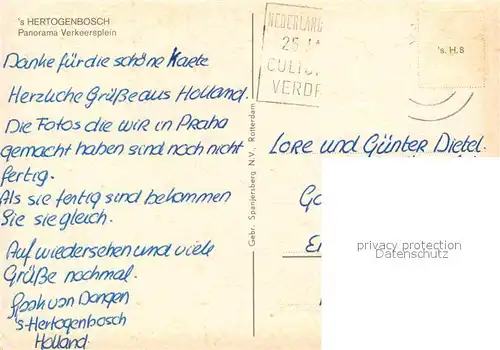 's HERTOGENBOSCH
Panorama Verkeersplein
NEDERLAND
CULTU
VERDR
's. H.8
Danke für die schöne Kaete
Herzliche Grüße aus Holland.
Die Fotos die wir in Praha
gemacht haben sind noch nicht
fertig.
Als sie fertig sind bekommen
Sie sie gleich.
Auf wiedersehen und viele
Grüße nochmal.
van Dongen
's-Hertogenbosch
Holland.
Gebr. Spanjersberg N.V., Rotterdam
Lore und Günter Dietel.
privacy protection
Veronika Reznicek